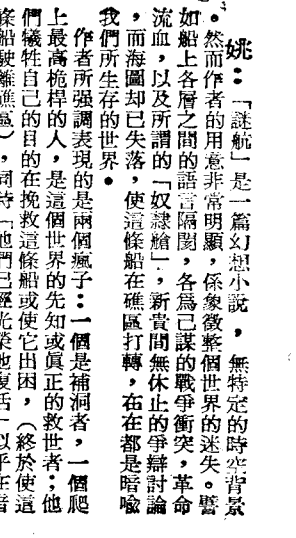 姚：「謎航」是一篇幻想小說，無特定的時空背景
。然而作者的用意非常明顯，係象徵整個世界的迷失。譬
如船上各層之間的語言隔閡，各為己謀的戰爭衝突，革命
流血，以及所謂的「奴隸艙」，新貴間無休止的爭辯討論
，而海圖却已失落，使這條船在礁區打轉，在在都是暗喩
我們所生存的世界。
作者所强調表現的是兩個瘋子：一個是補洞者，一個爬
上最高桅桿的人，是這個世界的先知或眞正的救世者；他
們犧牲自己的目的在挽救這條船或使它出困，（終於使這
條船駛離礁區），同時「他們已經光榮地復活」似乎在音